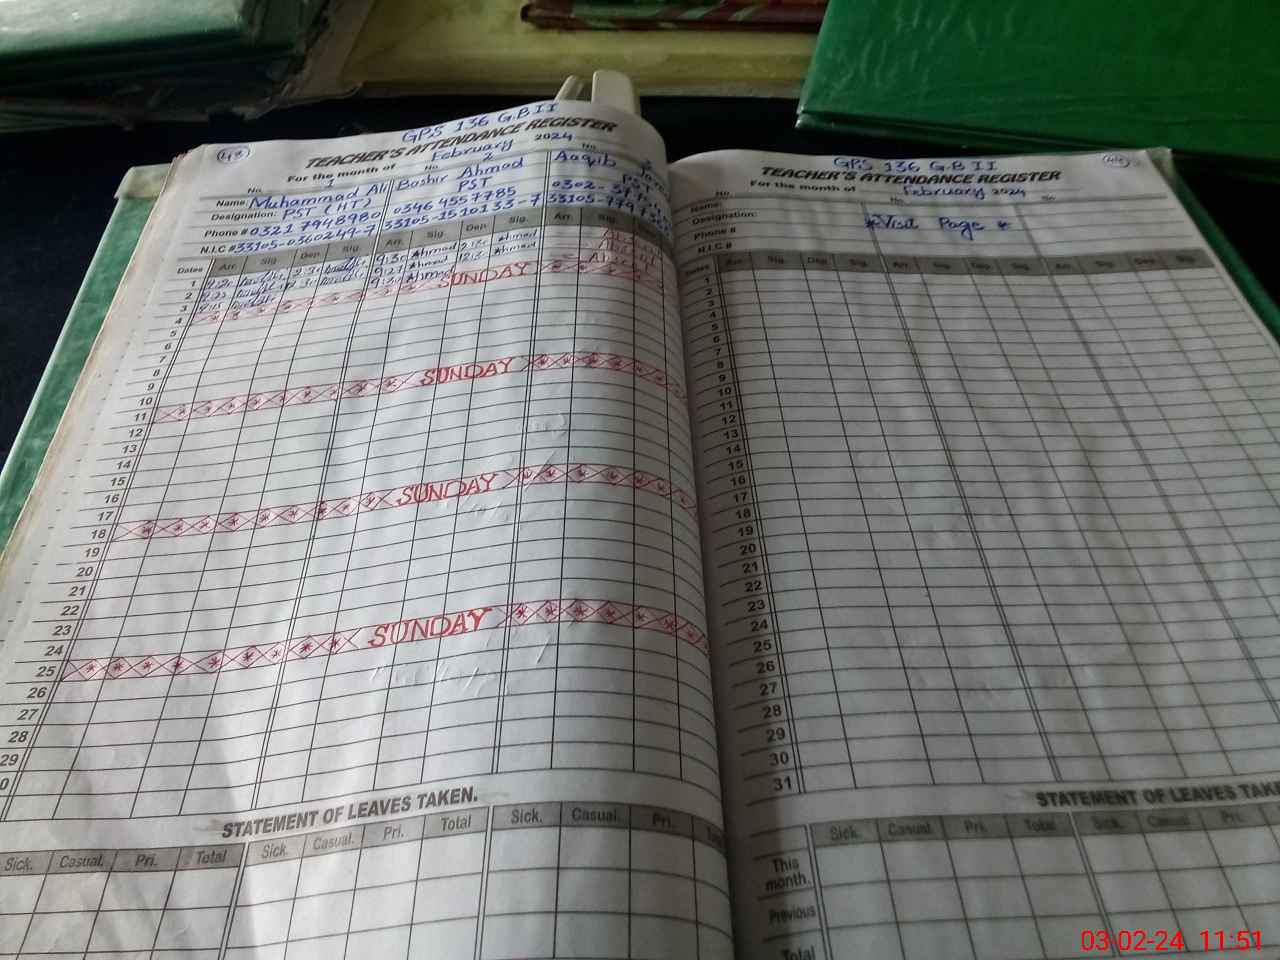 GPS 136 G.B II
48
TEACHER'S ATTENDANCE REGISTER
For the month of February 2024
No. 1 No. 2 No. 3
Name: Muhammad Ali Bashir Ahmad Aaqib
Designation: PST (HT) PST PST
Phone # 0321 7948980 0346 4557785 0302-
N.I.C # 33105-0360249-7 33105-1510133-7 33105-
Dates Arr. Sig. Dep. Sig. Arr. Sig. Dep. Sig. Arr. Sig.
1 Ahmad Ahmad
2 Ahmad Ahmad
3 Ahmad
4 SUNDAY
5
6
7
8
9
10
11 SUNDAY
12
13
14
15
16
17
18 SUNDAY
19
20
21
22
23
24
25 SUNDAY
26
27
28
29
0
STATEMENT OF LEAVES TAKEN.
Sick. Casual. Pri. Total Sick. Casual. Pri. Total Sick. Casual. Pri.
GPS 136 G.B II
TEACHER'S ATTENDANCE REGISTER
For the month of February 2024
No. No. No
Name:
Designation: *Visit Page *
Phone #
N.I.C #
Dates Arr. Sig. Dep. Sig. Arr. Sig. Dep. Sig. Arr. Sig. Dep. Sig.
1
2
3
4
5
6
7
8
9
10
11
12
13
14
15
16
17
18
19
20
21
22
23
24
25
26
27
28
29
30
31
STATEMENT OF LEAVES TAKE
Sick. Casual. Pri. Total Sick. Casual. Pri.
This
month.
Previous
Total
03-02-24 11:51